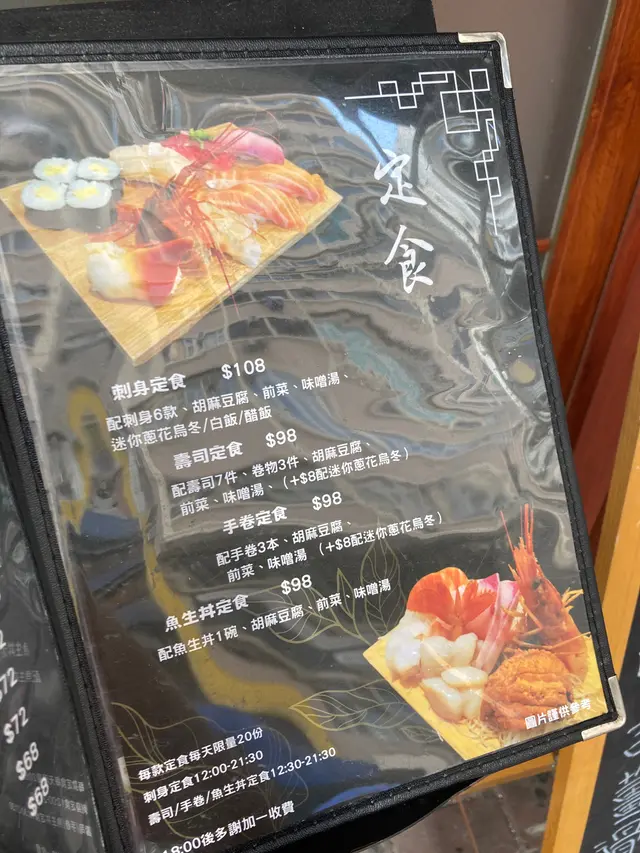 定食
刺身定食 $108
配刺身6款、胡麻豆腐、前菜、味噌湯、
迷你蔥花烏冬/白飯/醋飯
壽司定食 $98
配壽司7件、卷物3件、胡麻豆腐、
前菜、味噌湯、(+$8配迷你蔥花烏冬)
手卷定食 $98
配手卷3本、胡麻豆腐、
前菜、味噌湯 (+$8配迷你蔥花烏冬)
魚生丼定食 $98
配魚生丼1碗、胡麻豆腐、前菜、味噌湯
圖片謹供參考
每款定食每天限量20份
刺身定食12:00-21:30
壽司/手卷/魚生丼定食12:30-21:30
18:00後多謝加一收費
$72
$68
$68